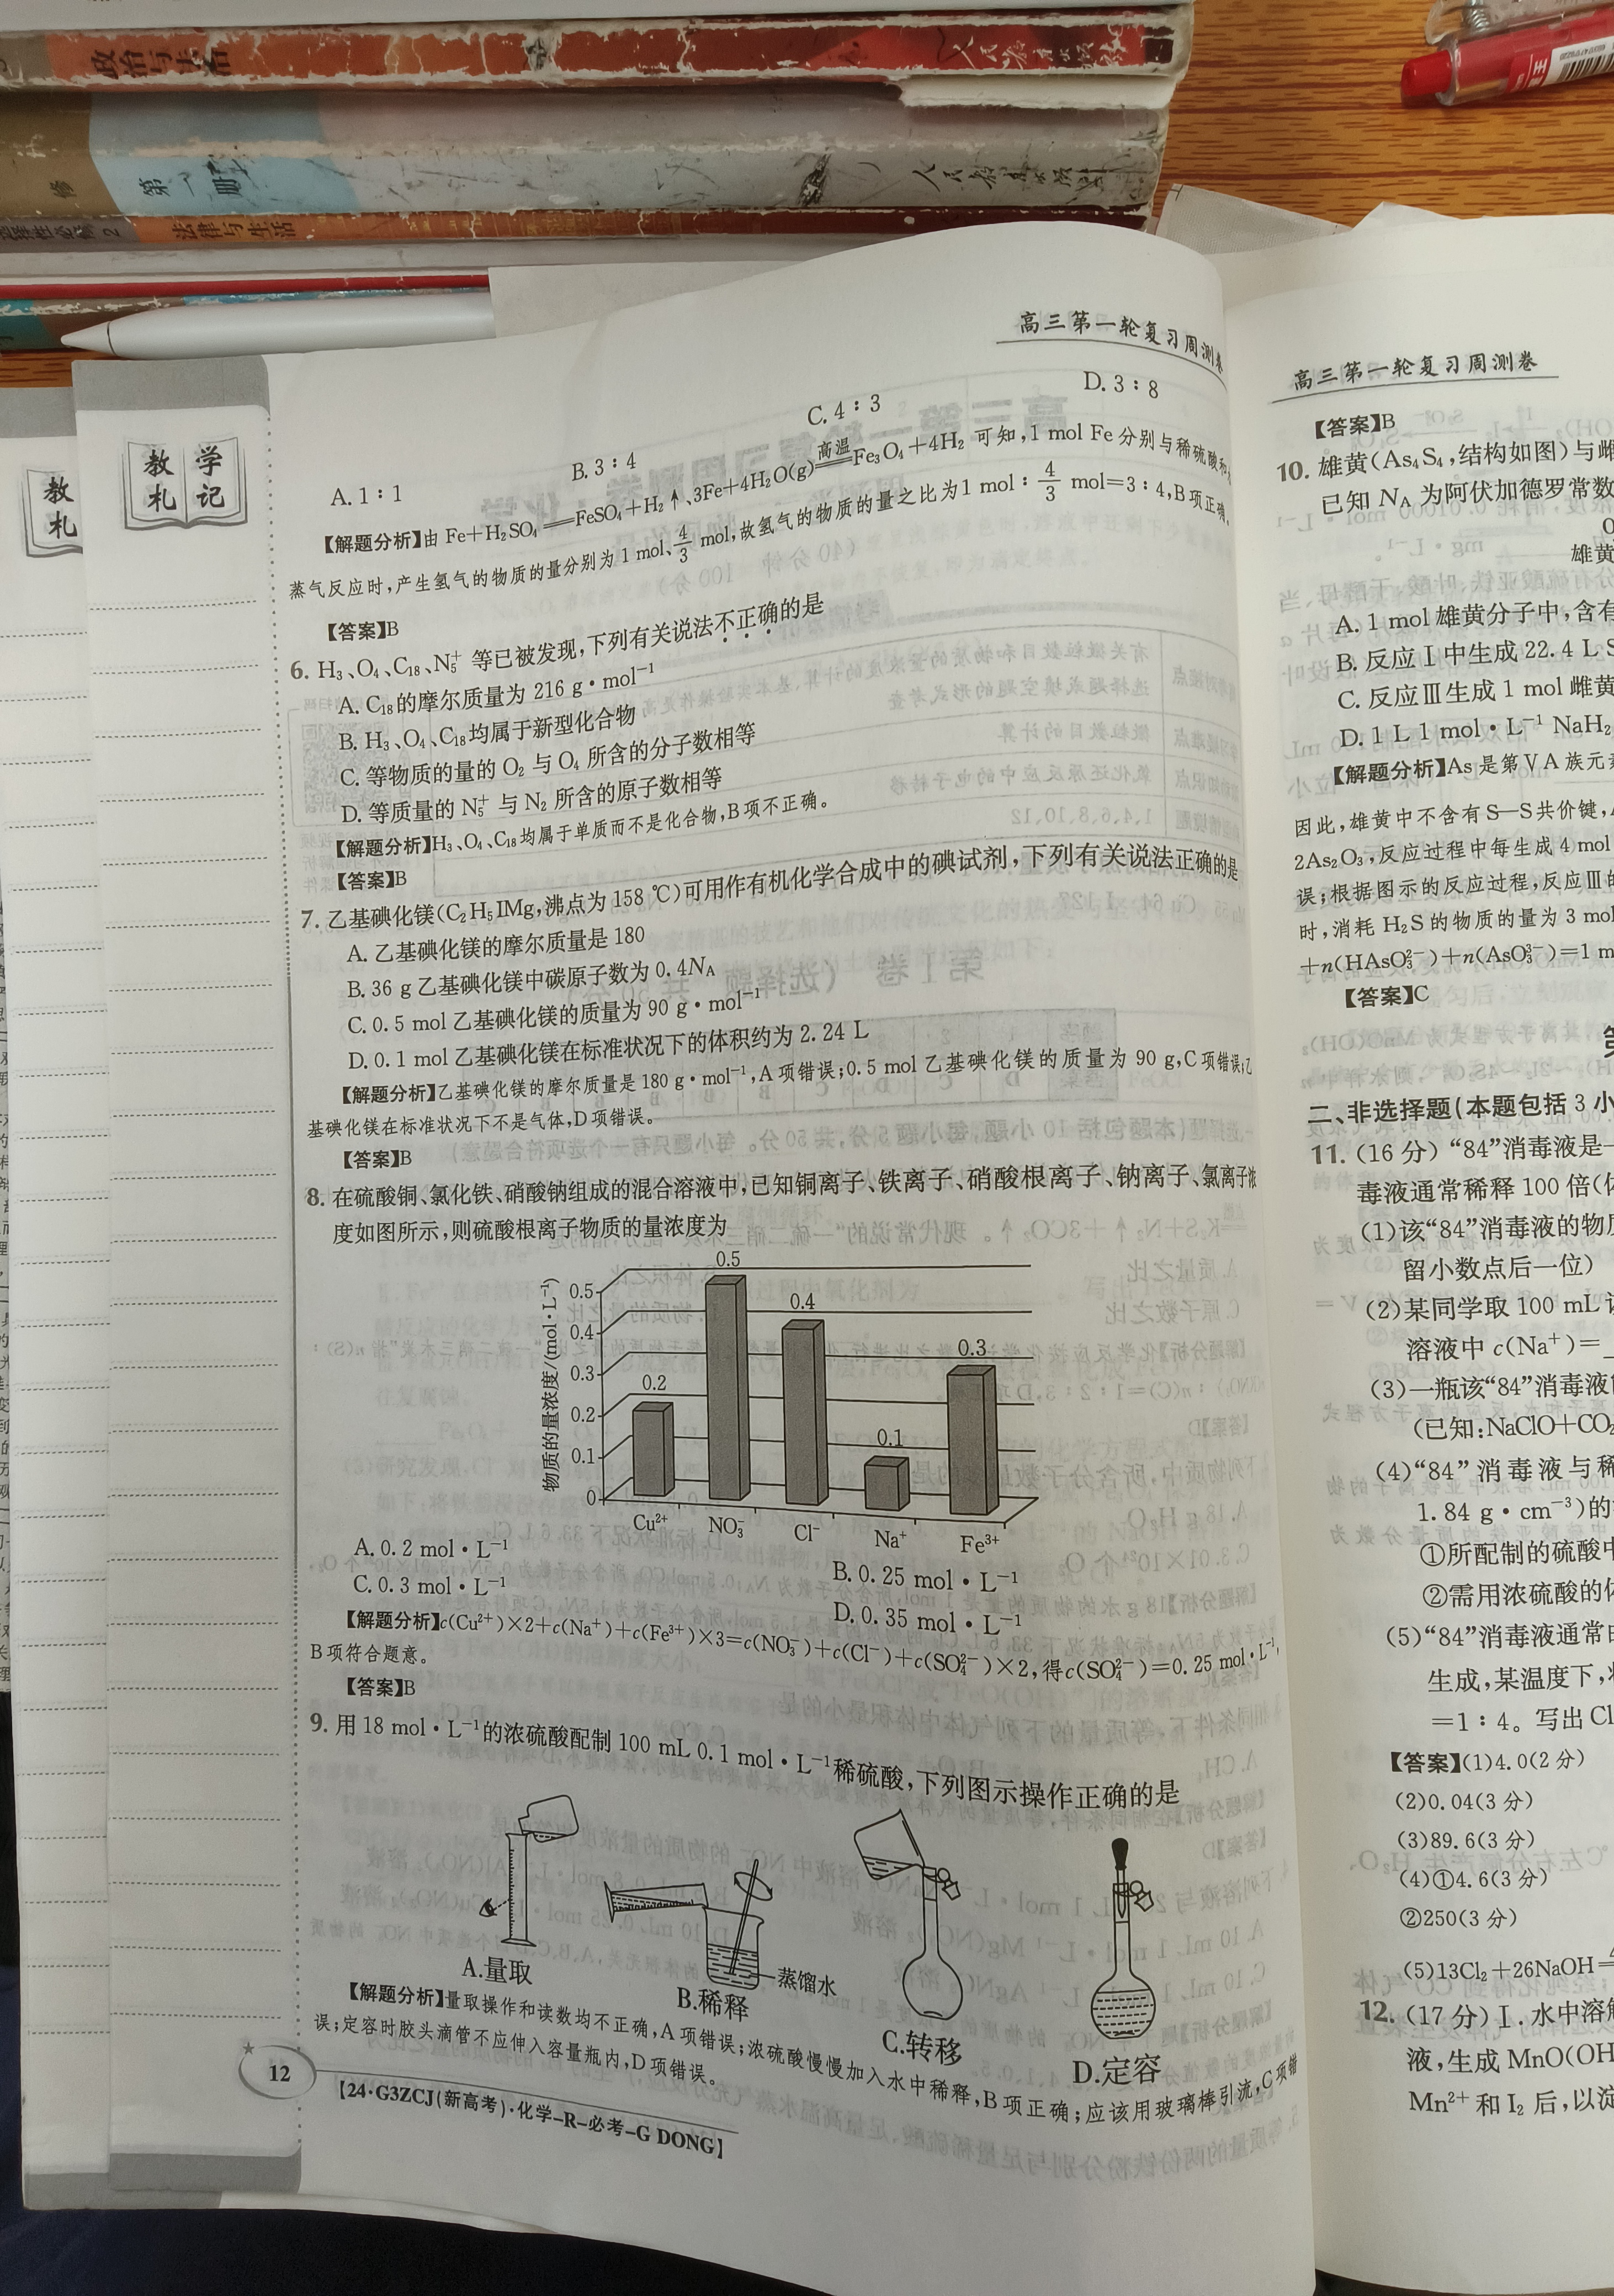 政治与法治
人民教育出版社
修
第一册
人民教育出版社
选择性必修2
法律与生活
教学
札记
教
札
高三第一轮复习周测卷
A. 1∶1
B. 3∶4
C. 4∶3
D. 3∶8
【解题分析】由 Fe+H₂SO₄══FeSO₄+H₂↑、3Fe+4H₂O(g)══(高温)Fe₃O₄+4H₂ 可知,1 mol Fe 分别与稀硫酸和
蒸气反应时,产生氢气的物质的量分别为 1 mol、4/3 mol,故氢气的物质的量之比为 1 mol∶4/3 mol=3∶4,B 项正确。
【答案】B
6. H₃、O₄、C₁₈、N₅⁺ 等已被发现,下列有关说法不正确的是
A. C₁₈的摩尔质量为 216 g·mol⁻¹
B. H₃、O₄、C₁₈均属于新型化合物
C. 等物质的量的 O₂ 与 O₄ 所含的分子数相等
D. 等质量的 N₅⁺ 与 N₂ 所含的原子数相等
【解题分析】H₃、O₄、C₁₈均属于单质而不是化合物,B 项不正确。
【答案】B
7. 乙基碘化镁(C₂H₅IMg,沸点为 158 ℃)可用作有机化学合成中的碘试剂,下列有关说法正确的是
A. 乙基碘化镁的摩尔质量是 180
B. 36 g 乙基碘化镁中碳原子数为 0.4Nₐ
C. 0.5 mol 乙基碘化镁的质量为 90 g·mol⁻¹
D. 0.1 mol 乙基碘化镁在标准状况下的体积约为 2.24 L
【解题分析】乙基碘化镁的摩尔质量是 180 g·mol⁻¹,A 项错误;0.5 mol 乙基碘化镁的质量为 90 g,C 项错误;乙
基碘化镁在标准状况下不是气体,D 项错误。
【答案】B
8. 在硫酸铜、氯化铁、硝酸钠组成的混合溶液中,已知铜离子、铁离子、硝酸根离子、钠离子、氯离子浓
度如图所示,则硫酸根离子物质的量浓度为
物质的量浓度/(mol·L⁻¹)
0.5
0.4
0.3
0.2
0.1
0
0.2
0.5
0.4
0.1
0.3
Cu²⁺ NO₃⁻ Cl⁻ Na⁺ Fe³⁺
A. 0.2 mol·L⁻¹
B. 0.25 mol·L⁻¹
C. 0.3 mol·L⁻¹
D. 0.35 mol·L⁻¹
【解题分析】c(Cu²⁺)×2+c(Na⁺)+c(Fe³⁺)×3=c(NO₃⁻)+c(Cl⁻)+c(SO₄²⁻)×2,得 c(SO₄²⁻)=0.25 mol·L⁻¹,
B 项符合题意。
【答案】B
9. 用 18 mol·L⁻¹的浓硫酸配制 100 mL 0.1 mol·L⁻¹稀硫酸,下列图示操作正确的是
蒸馏水
A.量取
B.稀释
C.转移
D.定容
【解题分析】量取操作和读数均不正确,A 项错误;浓硫酸慢慢加入水中稀释,B 项正确;应该用玻璃棒引流,C 项错
误;定容时胶头滴管不应伸入容量瓶内,D 项错误。
12
【24·G3ZCJ(新高考)·化学-R-必考-G DONG】
高三第一轮复习周测卷
【答案】B
10. 雄黄(As₄S₄,结构如图)与雌
已知 Nₐ 为阿伏加德罗常数
雄黄
A. 1 mol 雄黄分子中,含有
B. 反应Ⅰ中生成 22.4 L S
C. 反应Ⅲ生成 1 mol 雌黄
D. 1 L 1 mol·L⁻¹ NaH₂
【解题分析】As 是第ⅤA 族元素
因此,雄黄中不含有 S—S 共价键,
2As₂O₃,反应过程中每生成 4 mol
误;根据图示的反应过程,反应Ⅲ的
时,消耗 H₂S 的物质的量为 3 mol
+n(HAsO₃²⁻)+n(AsO₃³⁻)=1 m
【答案】C
第
二、非选择题(本题包括 3 小
11. (16 分) “84”消毒液是一
毒液通常稀释 100 倍(体
(1)该“84”消毒液的物质
留小数点后一位)
(2)某同学取 100 mL 该
溶液中 c(Na⁺)=
(3)一瓶该“84”消毒液
(已知:NaClO+CO₂
(4)“84”消毒液与稀
1.84 g·cm⁻³)的
①所配制的硫酸中
②需用浓硫酸的体
(5)“84”消毒液通常由
生成,某温度下,将
=1∶4。写出 Cl
【答案】(1)4.0(2 分)
(2)0.04(3 分)
(3)89.6(3 分)
(4)①4.6(3 分)
②250(3 分)
(5)13Cl₂+26NaOH
12. (17 分)Ⅰ. 水中溶解
液,生成 MnO(OH
Mn²⁺ 和 I₂ 后,以淀